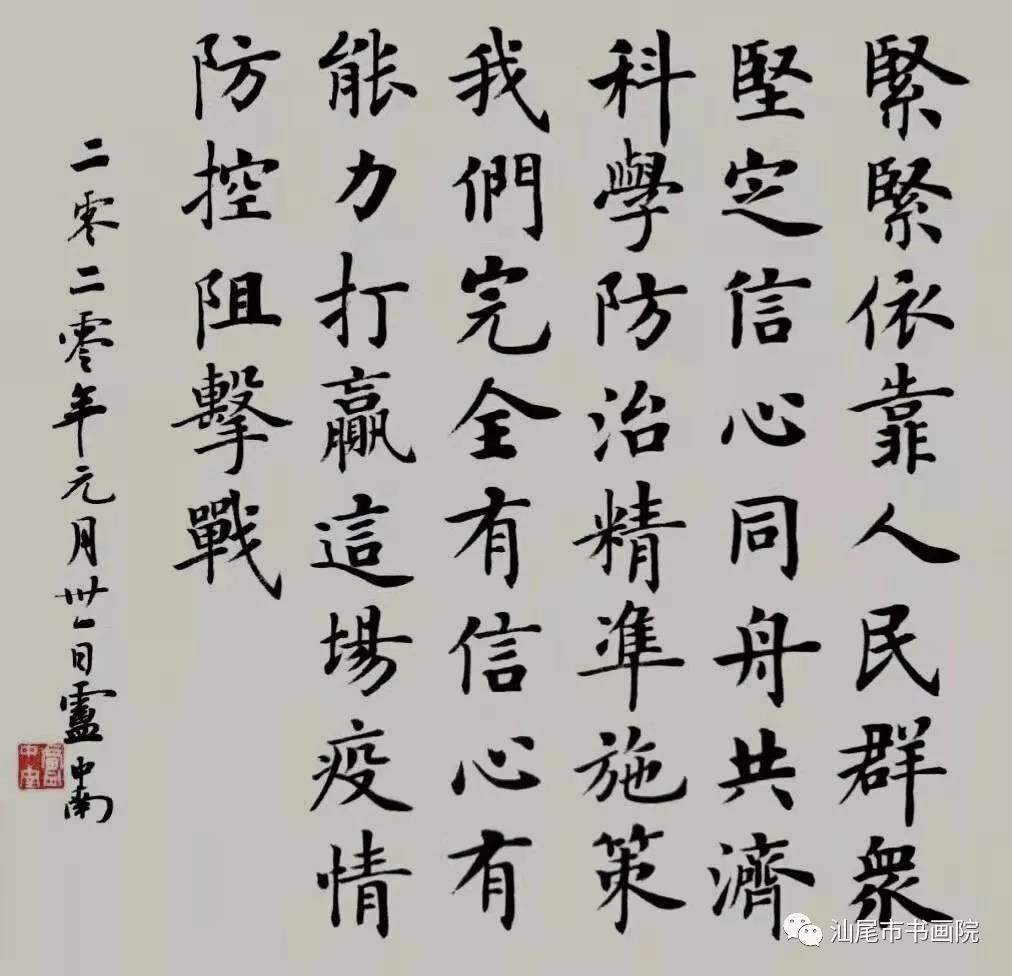 緊緊依靠人民群衆
堅定信心同舟共濟
科學防治精準施策
我們完全有信心有
能力打贏這場疫情
防控阻擊戰
二零二零年元月卅一日盧中南
盧中南
汕尾市书画院